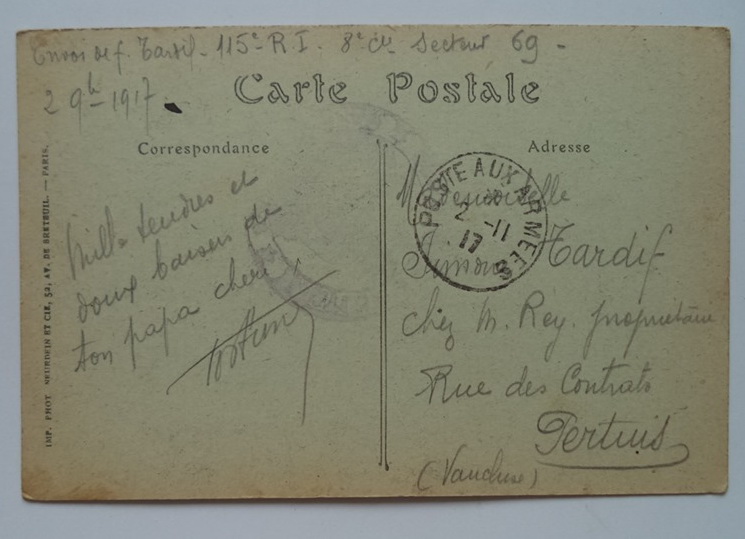 Envoi de f. Tardif - 115e R. I. 8e cie Secteur 69 -
2 9b-1917
Carte Postale
Correspondance
Adresse
Mille tendres et
doux baisers de
ton papa cheri
Mademoiselle
Simone Tardif
chez M. Rey. propriétaire
Rue des Contrats
Pertuis
(Vaucluse)
POSTE AUX ARMEES
2 -11
17
IMP. PHOT. NEURDEIN ET CIE, 52, AV. DE BRETEUIL. — PARIS.